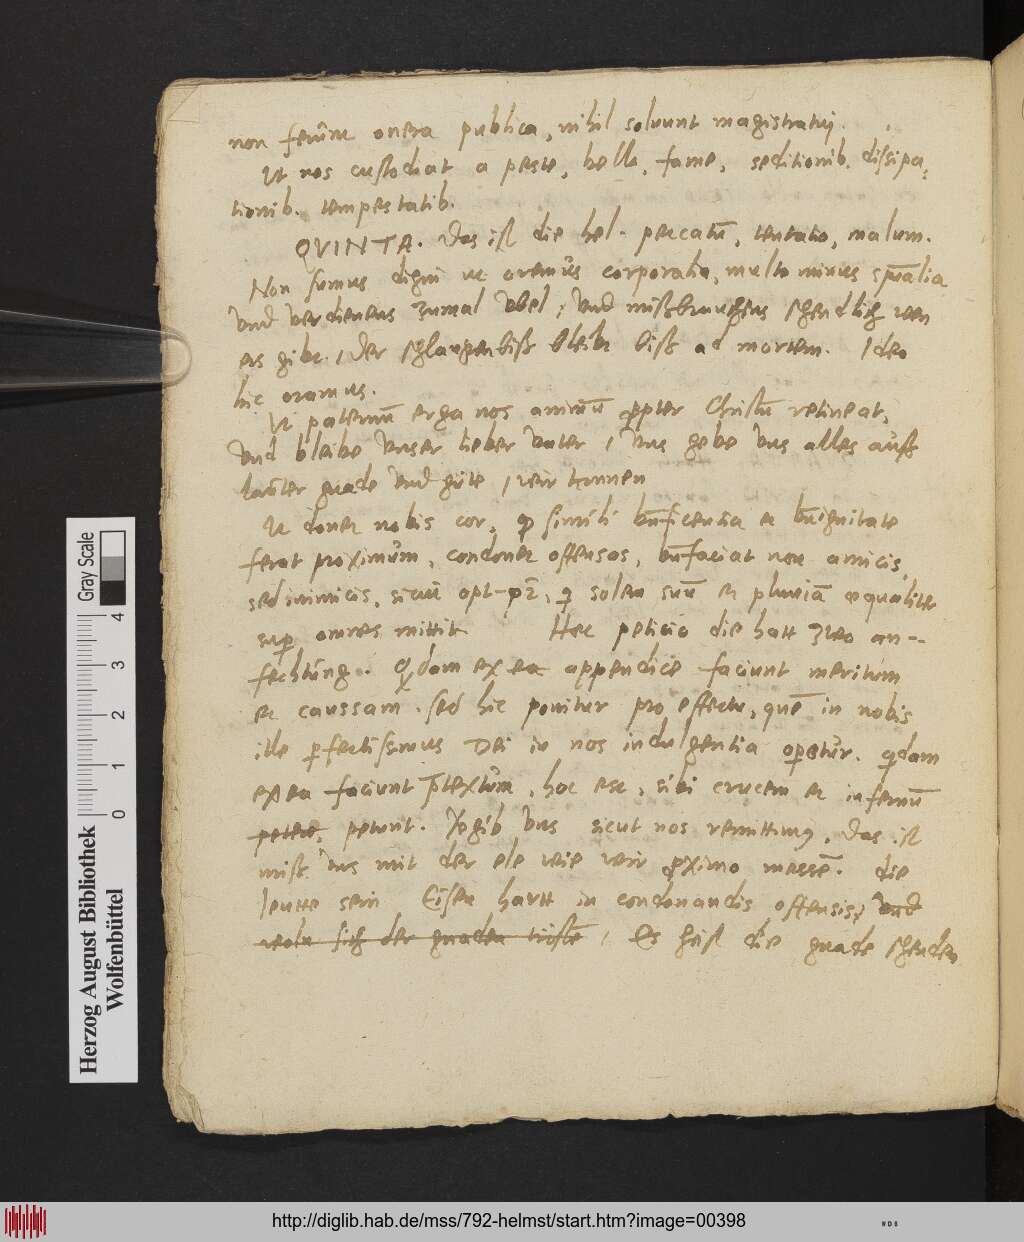 non ferūt onera publica, nihil soluunt magistratuj.
Vt nos custodiat a peste, bello, fame, seditionib. dissipa,
tionib. tempestatib.
QVINTA. Das ist die hel. peccatū, tentatio, malum.
Non sumus digni ut oremus corporalia, multo minus spūalia
vnd verdienens zumal vbel, vnd mißbrauchens schendlich wen
ers gibt, der schlangenbiß bleibt biß ad mortem. Ideo
hic oramus.
Vt paternū erga nos animū propter Christū retineat,
vnd bleibe vnser lieber vater, vns gebe vns alles auß
lauter gnade vnd güte, weir konnen
Vt donet nobis cor, simili bnficentia et benignitate
ferat proximum, condonet offensas, bnfaciat non amicis,
sed inimicis, sicut opt. solem suū et pluuiā equaliter
sup omnes mittit Hec peticio die hatt zwo an--
fechtung. Qdam ex ea appendice faciunt meritum
et caussam. sed hic ponitur pro effectu, quē in nobis
ille pfectissimus Dei in nos indulgentia opetur. qdam
ex ea faciunt ptextum, hoc est, sibi crucem et infernū
petere, petunt. Vogib vns sicut nos remittimus, Das ist
miß vns mit der ele wie weir proximo messē. die
leutte sein Eisen hartt in condonandis offensis, vnd
der gnaden, Es heist die gnade schenden